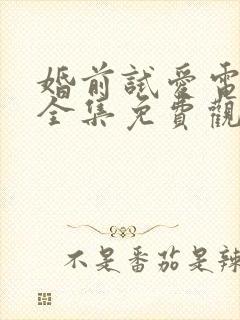 婚前試愛電
全集免費觀
不是番茄是辣